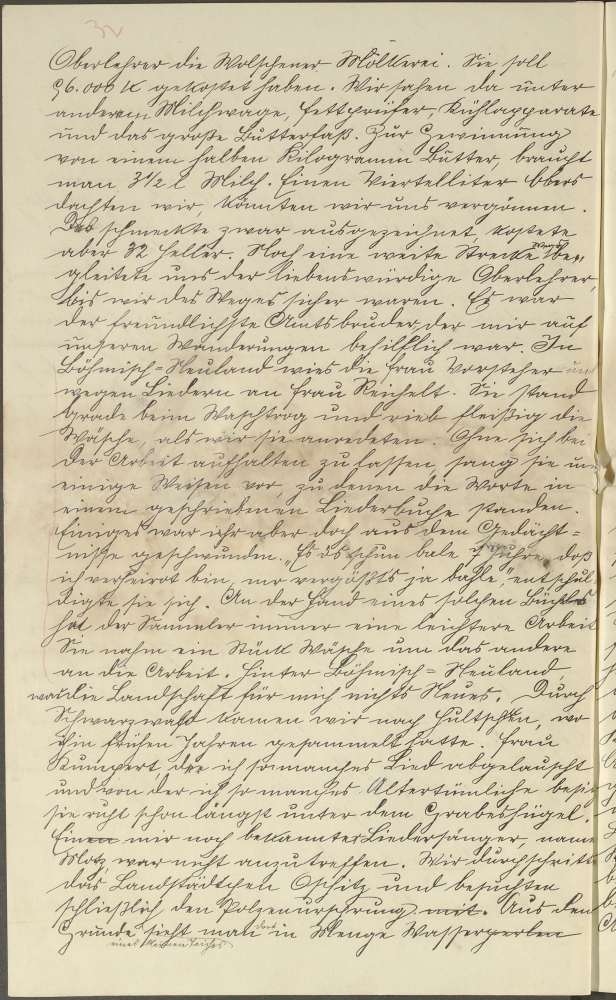 32
Oberlehrer die Wolschener Molkerei. Sie soll
96.000 K gekostet haben. Wir sahen da unter
anderem Milchwage, Fettprüfer, Kühlapparate
und das große Butterfaß. Zur Gewinnung
von einem halben Kilogramm Butter, braucht
man 3 1/2 l Milch. Einen Viertelliter Obers
dachten wir, könnten wir uns vergönnen.
Das schmeckte zwar ausgezeichnet, kostete
aber 32 Heller. Noch eine weite Strecke Wegs be=
gleitete uns der liebenswürdige Oberlehrer,
bis wir des Weges sicher waren. Es war
der freundlichste Amtsbruder, der mir auf
unseren Wanderungen behilflich war. In
Böhmisch=Neuland wies die Frau Vorsteher uns
wegen Liedern an Frau Reichelt. Sie stand
grade beim Waschtrog und rieb fleißig die
Wäsche, als wir sie anredeten. Ohne sich bei
der Arbeit aufhalten zu lassen, sang sie uns
einige Weisen vor, zu denen die Worte in
einem geschriebenen Liederbuche standen.
Einiges war ihr aber doch aus dem Gedächt=
nisse geschwunden. "Es os schun bale Juhre, doß
ich verheirot bin, mr vergößts ja bahle," entschul
digte sie sich. An der Hand eines solchen Büchls
hat der Sammler immer eine leichtere Arbeit
Sie nahm ein Stück Wäsche um das andere
an die Arbeit. Hinter Böhmisch=Neuland
war die Landschaft für mich nichts Neues. Durch
Schwarzwald kamen wir nach Hultschken, wo
ich in frühen Jahren gesammelt hatte. Frau
Kumpert, der ich so manches Lied abgelauscht
und von der ich so manches Altertümliche besitz
sie ruht schon längst unter dem Grabeshügel.
Ein mir noch bekannter Liedersänger, name
Motz, war nicht anzutreffen. Wir durchschritte
das Landstädtchen Oschitz und besuchten
schließlich den Polzenursprung mit. Aus dem
Grunde eines kleinen Teiches sieht man dort in Menge Wasserperlen